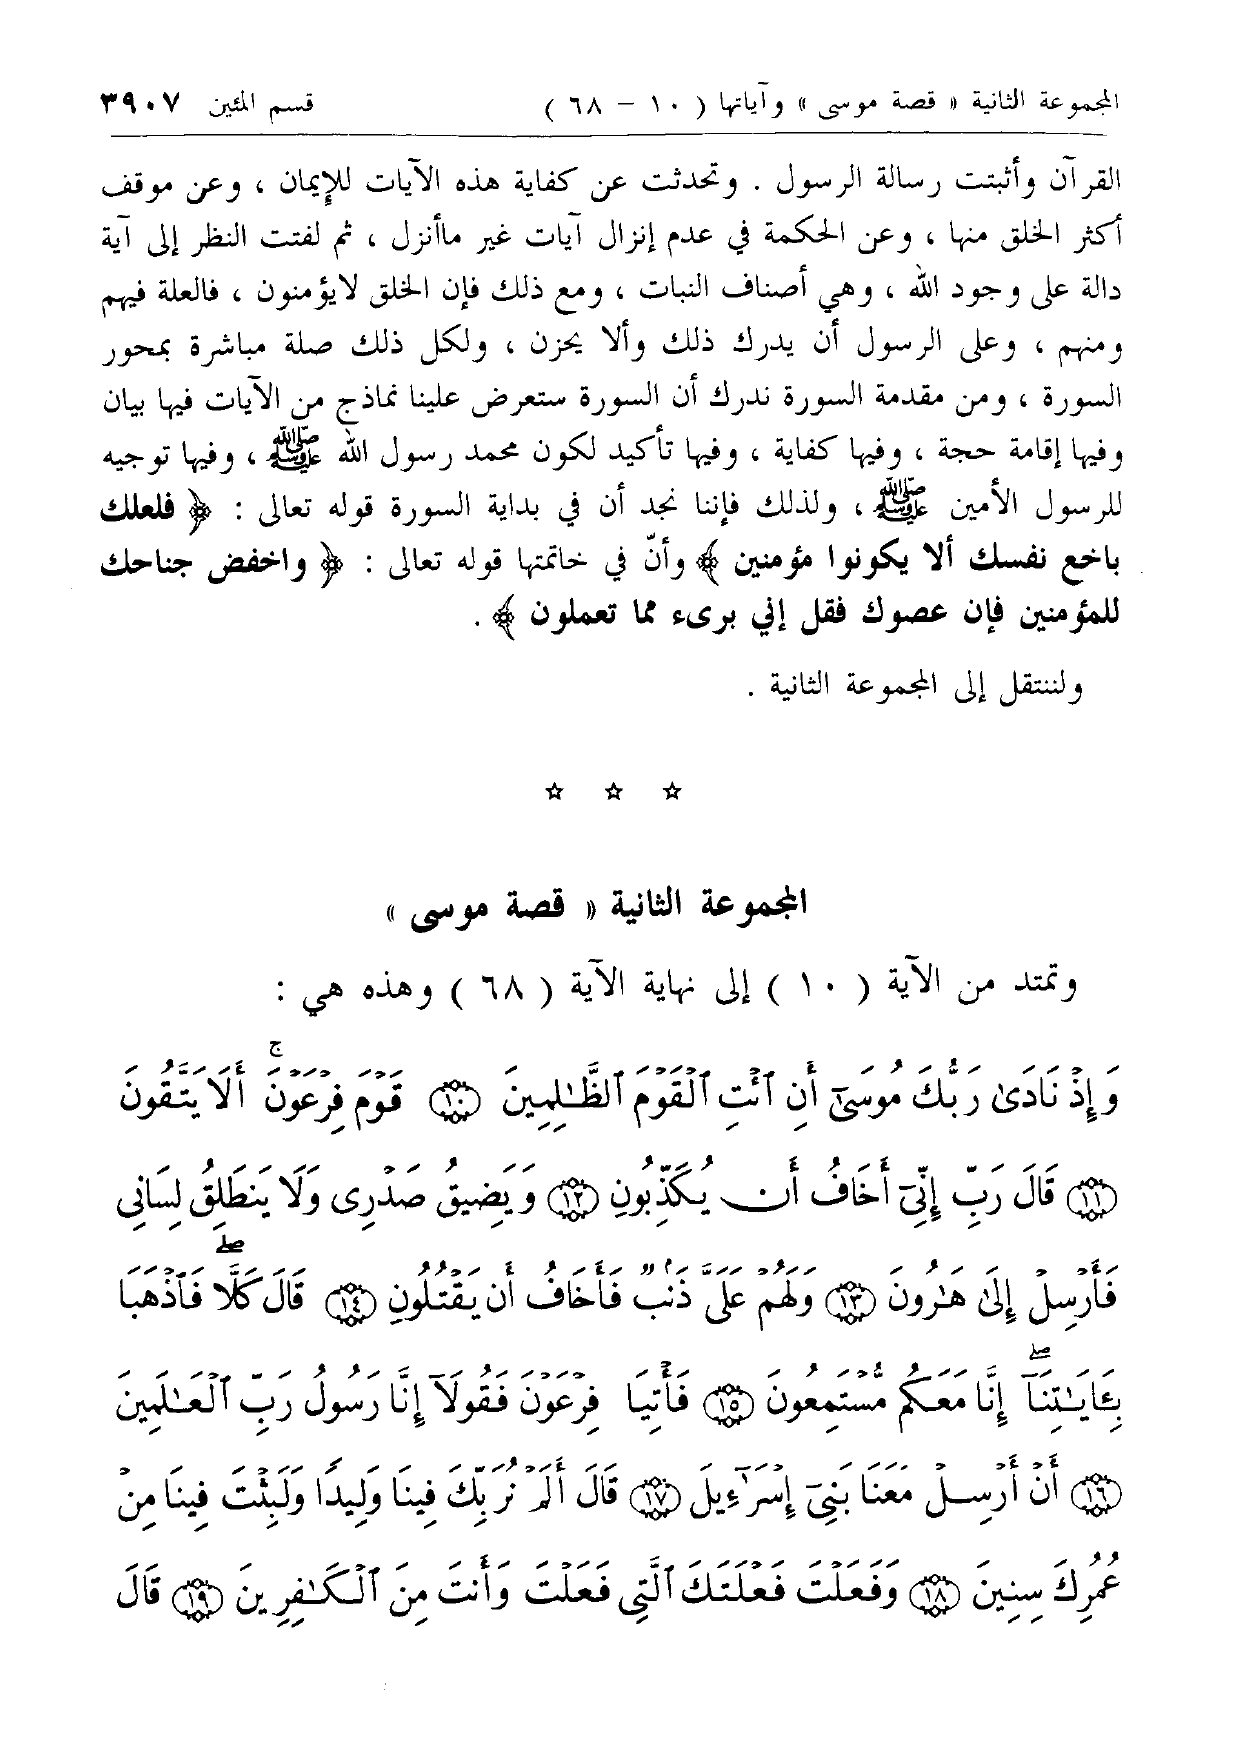 المجموعة الثانية « قصة موسى » وآياتها ( ١٠ – ٦٨ ) قسم المئين ٣٩٠٧
القرآن وأثبتت رسالة الرسول . وتحدثت عن كفاية هذه الآيات للإيمان ، وعن موقف
أكثر الخلق منها ، وعن الحكمة في عدم إنزال آيات غير ماأنزل ، ثم لفتت النظر إلى آية
دالة على وجود الله ، وهي أصناف النبات ، ومع ذلك فإن الخلق لايؤمنون ، فالعلة فيهم
ومنهم ، وعلى الرسول أن يدرك ذلك وألا يحزن ، ولكل ذلك صلة مباشرة بمحور
السورة ، ومن مقدمة السورة ندرك أن السورة ستعرض علينا نماذج من الآيات فيها بيان
وفيها إقامة حجة ، وفيها كفاية ، وفيها تأكيد لكون محمد رسول الله ﷺ ، وفيها توجيه
للرسول الأمين ﷺ ، ولذلك فإننا نجد أن في بداية السورة قوله تعالى : ﴿ فلعلك
باخع نفسك ألا يكونوا مؤمنين ﴾ وأنّ في خاتمتها قوله تعالى : ﴿ واخفض جناحك
للمؤمنين فإن عصوك فقل إني بريء مما تعملون ﴾ .
ولننتقل إلى المجموعة الثانية .
☆ ☆ ☆
المجموعة الثانية « قصة موسى »
وتمتد من الآية ( ١٠ ) إلى نهاية الآية ( ٦٨ ) وهذه هي :
وَإِذْ نَادَىٰ رَبُّكَ مُوسَىٰٓ أَنِ ٱئْتِ ٱلْقَوْمَ ٱلظَّـٰلِمِينَ ﴿١٠﴾ قَوْمَ فِرْعَوْنَ ۚ أَلَا يَتَّقُونَ
﴿١١﴾ قَالَ رَبِّ إِنِّىٓ أَخَافُ أَن يُكَذِّبُونِ ﴿١٢﴾ وَيَضِيقُ صَدْرِى وَلَا يَنطَلِقُ لِسَانِى
فَأَرْسِلْ إِلَىٰ هَـٰرُونَ ﴿١٣﴾ وَلَهُمْ عَلَىَّ ذَنۢبٌ فَأَخَافُ أَن يَقْتُلُونِ ﴿١٤﴾ قَالَ كَلَّا ۖ فَٱذْهَبَا
بِـَٔايَـٰتِنَآ ۖ إِنَّا مَعَكُم مُّسْتَمِعُونَ ﴿١٥﴾ فَأْتِيَا فِرْعَوْنَ فَقُولَآ إِنَّا رَسُولُ رَبِّ ٱلْعَـٰلَمِينَ
﴿١٦﴾ أَنْ أَرْسِلْ مَعَنَا بَنِىٓ إِسْرَٰٓءِيلَ ﴿١٧﴾ قَالَ أَلَمْ نُرَبِّكَ فِينَا وَلِيدًا وَلَبِثْتَ فِينَا مِنْ
عُمُرِكَ سِنِينَ ﴿١٨﴾ وَفَعَلْتَ فَعْلَتَكَ ٱلَّتِى فَعَلْتَ وَأَنتَ مِنَ ٱلْكَـٰفِرِينَ ﴿١٩﴾ قَالَ